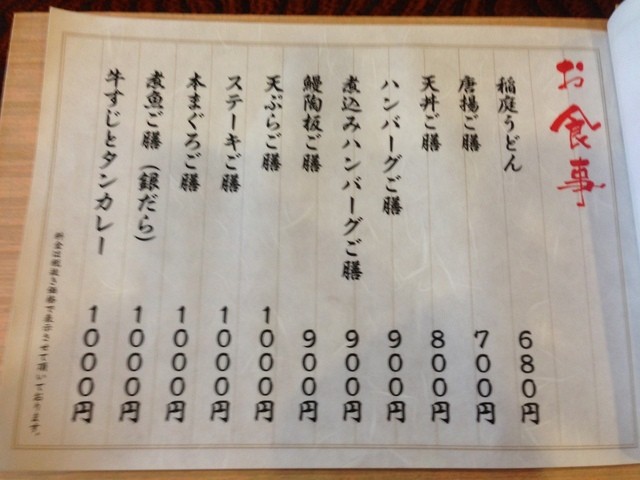 お食事
稲庭うどん 680円
唐揚ご膳 700円
天丼ご膳 800円
ハンバーグご膳 900円
煮込みハンバーグご膳 900円
鰻陶板ご膳 900円
天ぷらご膳 1000円
ステーキご膳 1000円
本まぐろご膳 1000円
煮魚ご膳（銀だら） 1000円
牛すじとタンカレー 1000円
料金は税抜き価格で表示させて頂いております。